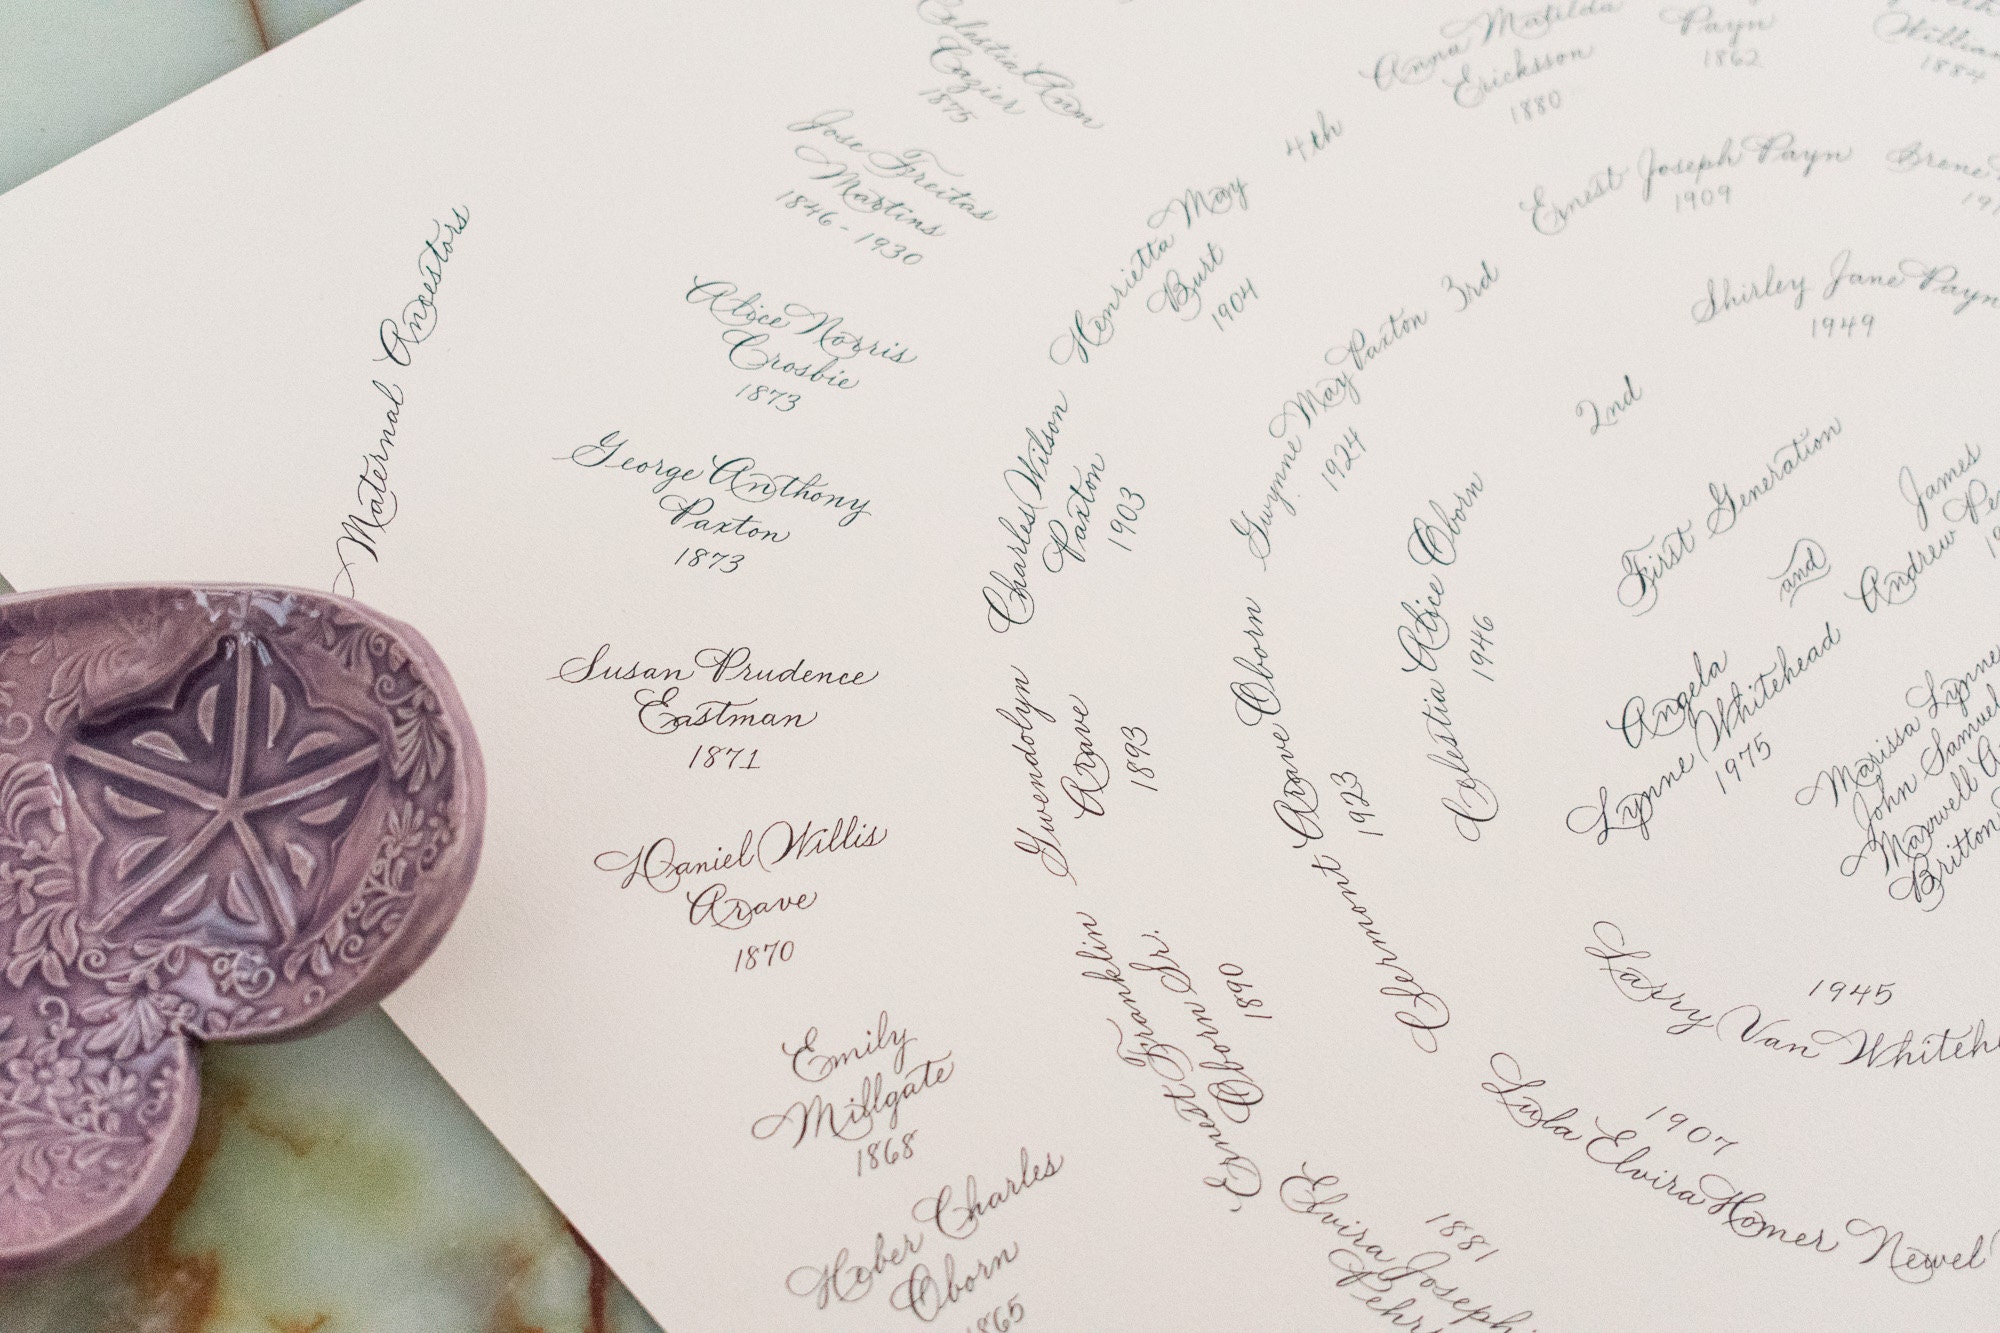 Maternal Ancestors
Celestia Ann
Cazier
1875
Jose Freitas
Martins
1846 - 1930
Alice Norris
Crosbie
1873
George Anthony
Paxton
1873
Susan Prudence
Eastman
1871
Daniel Willis
Arave
1870
Emily
Millgate
1868
Heber Charles
Oborn
1865
4th
Henrietta May
Burt
1904
Charles Wilson
Paxton
1903
Gwendolyn
Arave
1893
Ernest Franklin
Oborn Sr.
1890
1881
Elvira Joseph
Anna Matilda
Ericksson
1880
Payn
1862
William
1884
3rd
Ernest Joseph Payn
1909
Gwynne May Paxton
1924
Clermont Arave Oborn
1923
1907
Lula Elvira Homer
Newel
2nd
Shirley Jane Payn
1949
Celestia Alice Oborn
1946
1945
Larry Van
First Generation
James
Andrew
and
Angela
Lynne Whitehead
1975
Marissa Lynne
John Samuel
Maxwell
Britton